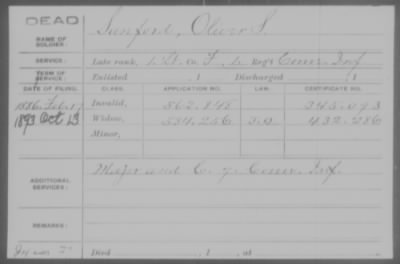 DEAD
NAME OF SOLDIER: Sanford, Oliver S.
SERVICE: Late rank, Co. Reg't Conn. Inf
TERM OF SERVICE: Enlisted , 1 Discharged , 1
DATE OF FILING. CLASS. APPLICATION NO. LAW. CERTIFICATE NO.
1886 Feb. 17 Invalid, 562.845 345.093
1893 Oct 13 Widow, 584.256 432.286
Minor,
ADDITIONAL SERVICES: Major and Conn. Inf.
REMARKS:
Died , 1 , at